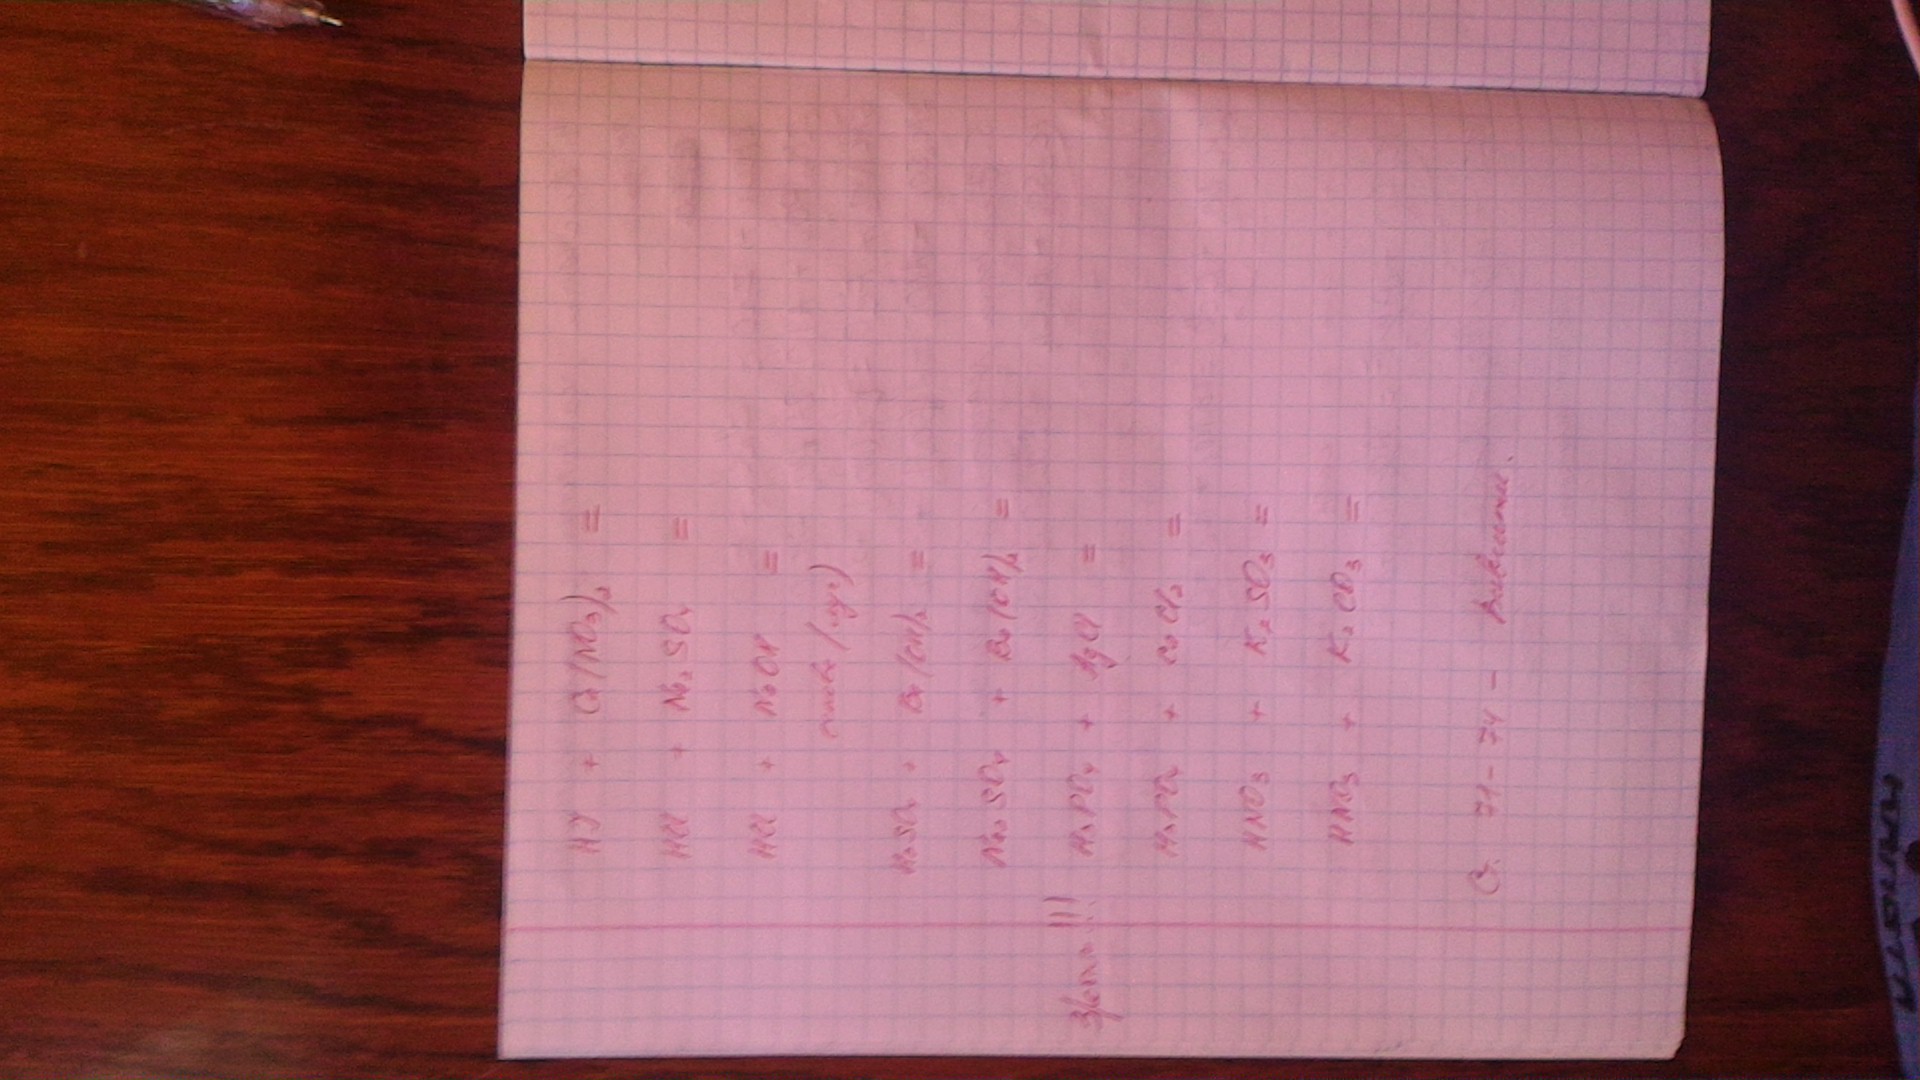 HJ + Ca(NO₃)₂ =
HCl + Na₂SO₄ =
HCl + NaOH =
H₂SO₄ + Ba(OH)₂ =
Na₂SO₄ + Ba(OH)₂ =
H₃PO₄ + AgCl =
H₃PO₄ + CaCl₂ =
HNO₃ + K₂SO₃ =
HNO₃ + K₂CO₃ =
С. 71-74 -